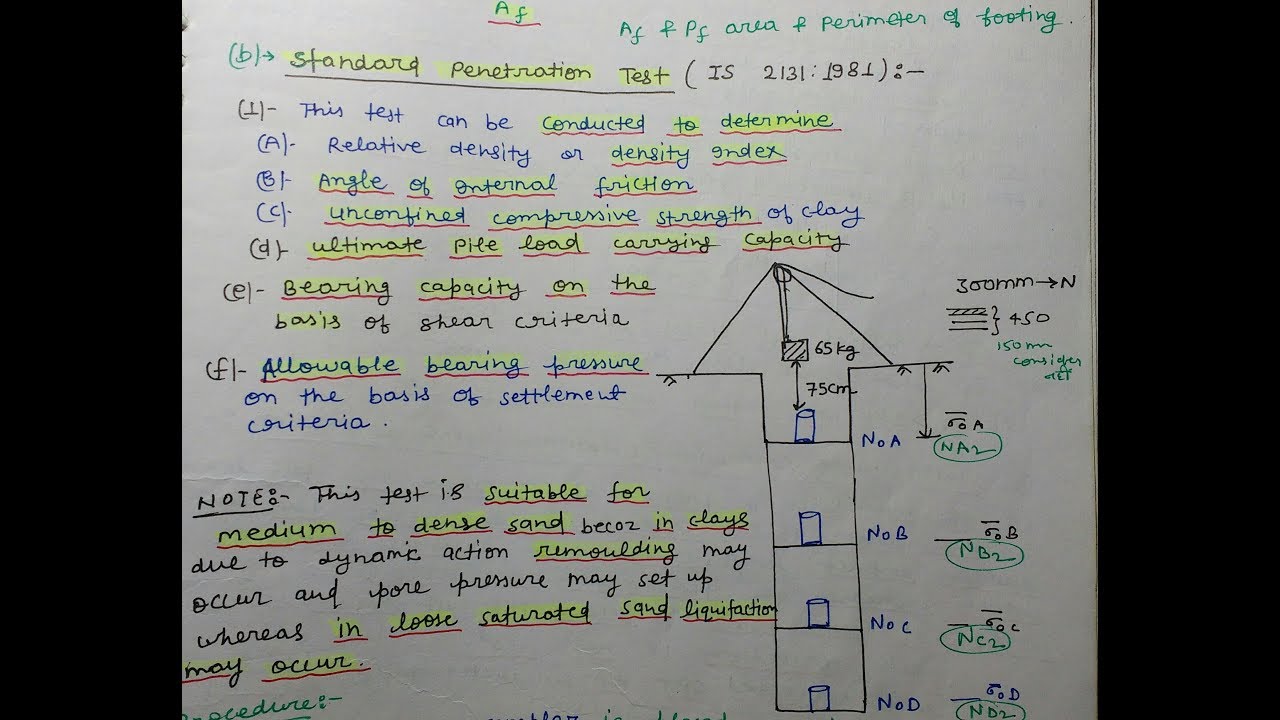 Af
Af & Pf area & perimeter of footing.
(b)→ Standard Penetration Test (IS 2131:1981):-
(1)- This test can be conducted to determine
(A)- Relative density or density index
(B)- Angle of internal friction
(C)- unconfined compressive strength of clay
(d)- ultimate pile load carrying capacity
(e)- Bearing capacity on the
basis of shear criteria
(f)- Allowable bearing pressure
on the basis of settlement
criteria.
300mm→N
} 450
150mm
consider
65kg
75cm
NoA
σ̅oA
NA2
NOTE:- This test is suitable for
medium to dense sand becoz in clays
due to dynamic action remoulding may
occur and pore pressure may set up
whereas in loose saturated sand liquifaction
may occur.
NoB
σ̅oB
NB2
NoC
σ̅oC
NC2
NoD
σ̅oD
ND2
Procedure:-